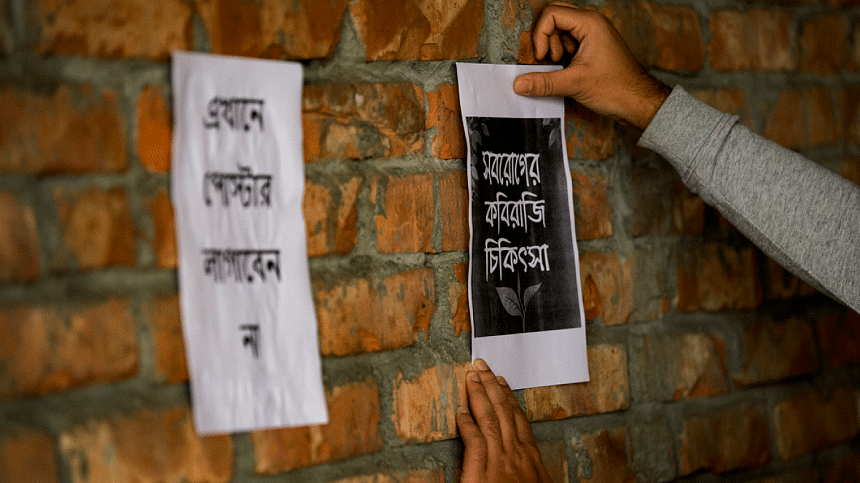 এখানে
পোস্টার
লাগাবেন
না
সবরোগের
কবিরাজি
চিকিৎসা